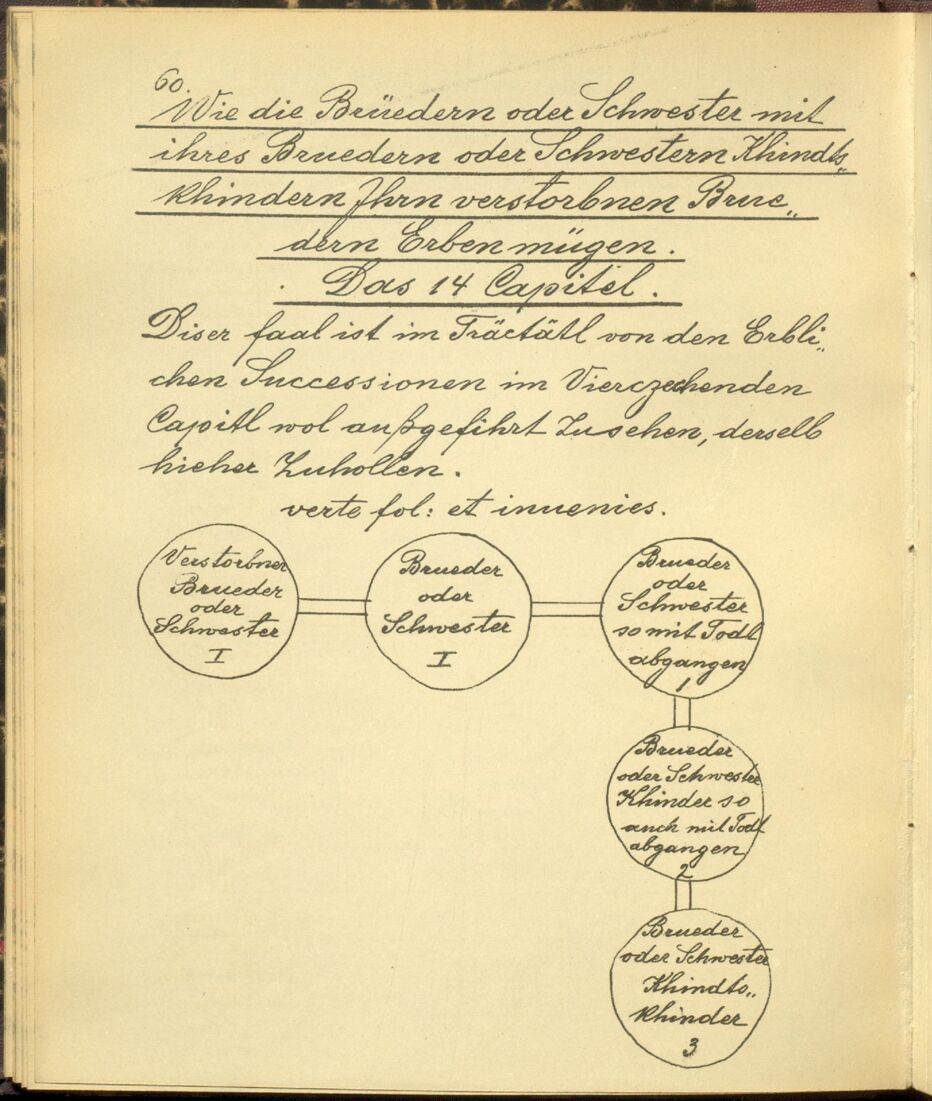 60.
Wie die Brüedern oder Schwester mit
ihres Bruedern oder Schwestern Khindts„
khindern Ihrn verstorbnen Brue„
dern Erben mügen.
Das 14 Capitel.
Diser faal ist im Träctätl von den Erbli„
chen Successionen im Vierczechenden
Capitl wol außgefihrt Zusehen, derselb
hieher Zuhollen.
verte fol: et inuenies.
Verstorbner
Brueder
oder
Schwester
I
Brueder
oder
Schwester
I
Brueder
oder
Schwester
so mit Todt
abgangen
1
Brueder
oder Schwester
Khinder so
auch mit Todt
abgangen
2
Brueder
oder Schwester
Khindts„
khinder
3